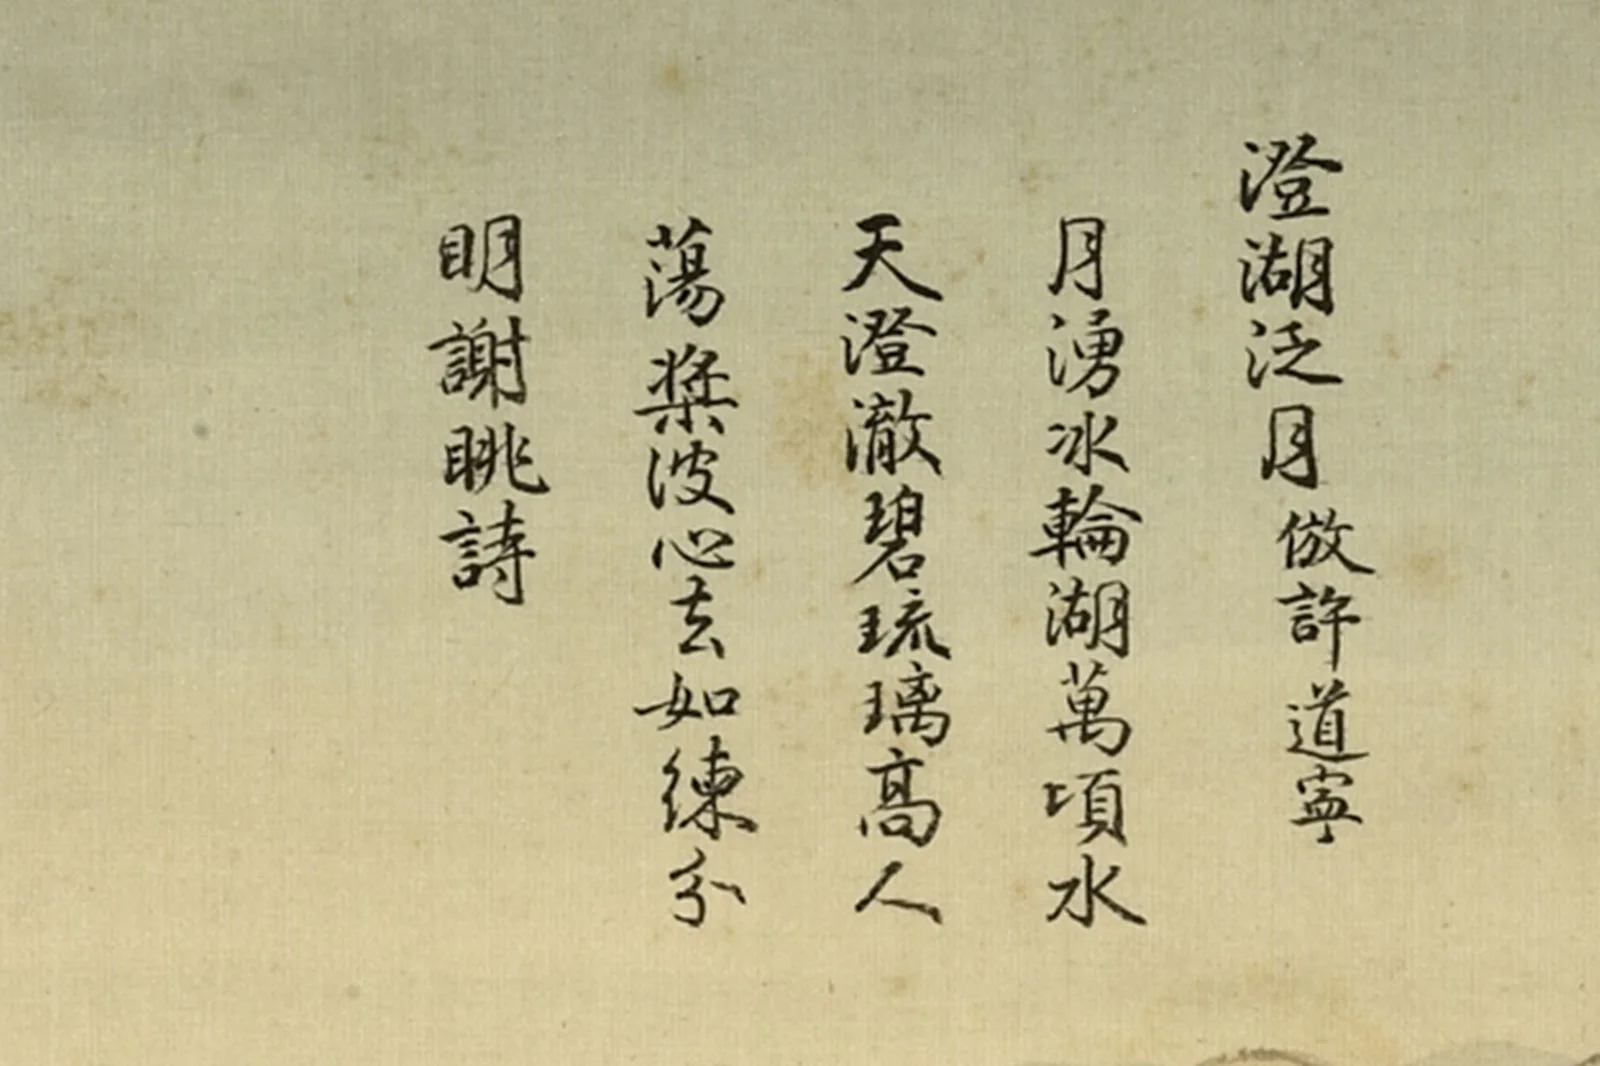 澄湖泛月倣許道寧
月湧冰輪湖萬頃水
天澄澈碧琉璃高人
蕩槳波心去如練分
明謝眺詩